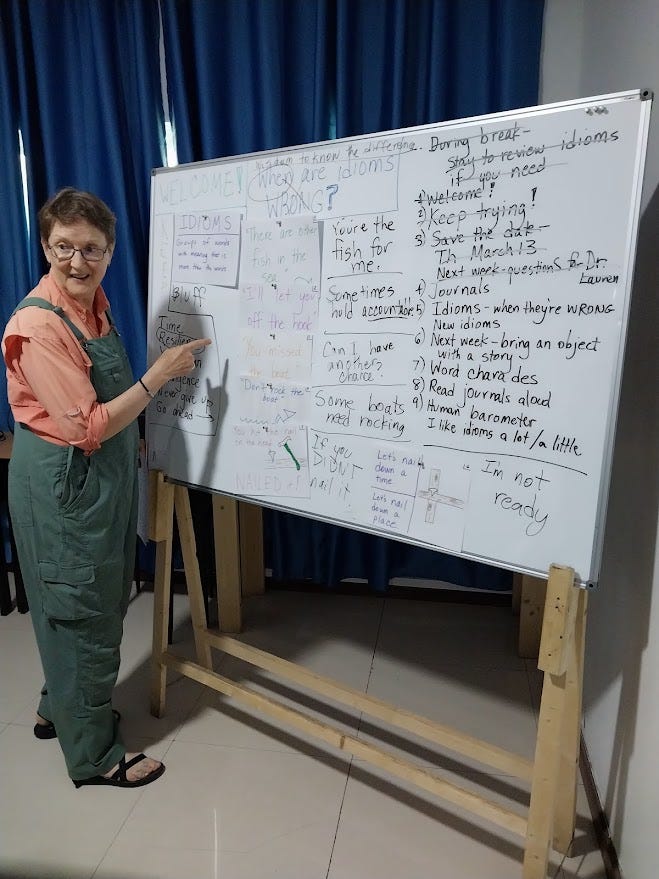 WELCOME!
wisdom to know the difference.
When are idioms
WRONG?
IDIOMS
Groups of words
with meaning that is
more than the words
Bluff
Time
Never give up
Go ahead →
"There are other
fish in the
sea."
"I'll let you
off the hook"
"You missed
the boat"
"Don't rock the
boat"
You hit the nail
on the head
NAILED it!
You're the
fish for
me.
Sometimes
hold accountable
Can I have
another
chance?
Some boats
need rocking
If you
DIDN'T
nail it
Let's nail
down a
time.
Let's nail
down a
place.
During break-
stay to review idioms
if you need
1) Welcome!
2) Keep trying!
3) Save the date-
Th March 13
Next week-questions for Dr.
Lauren
4) Journals
5) Idioms-when they're WRONG
New idioms
6) Next week-bring an object
with a story
7) Word charades
8) Read journals aloud
9) Human barometer
I like idioms a lot/a little
I'm not
ready